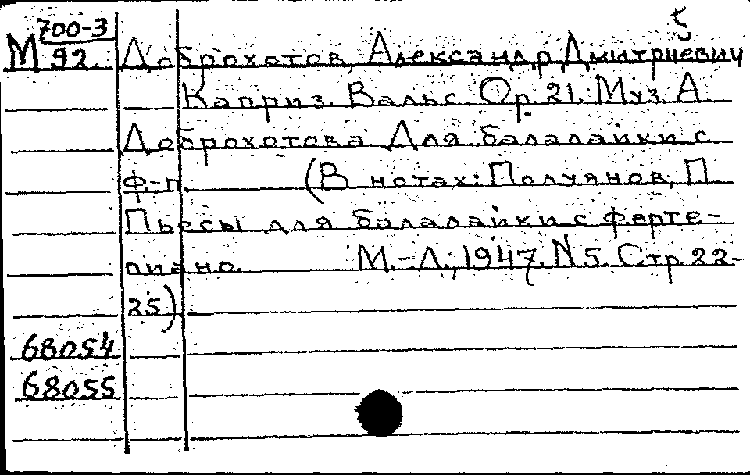 5
М 700-3
92 Доброхотов, Александр Дмитриевич
Каприз. Вальс. Ор. 21. Муз. А.
Доброхотова. Для балалайки с
ф-п. (В нотах: Полуянов, П.
Пьесы для балалайки с форте-
пиано. М.-Л., 1947. N 5. Стр. 22-
25)
68054
68055